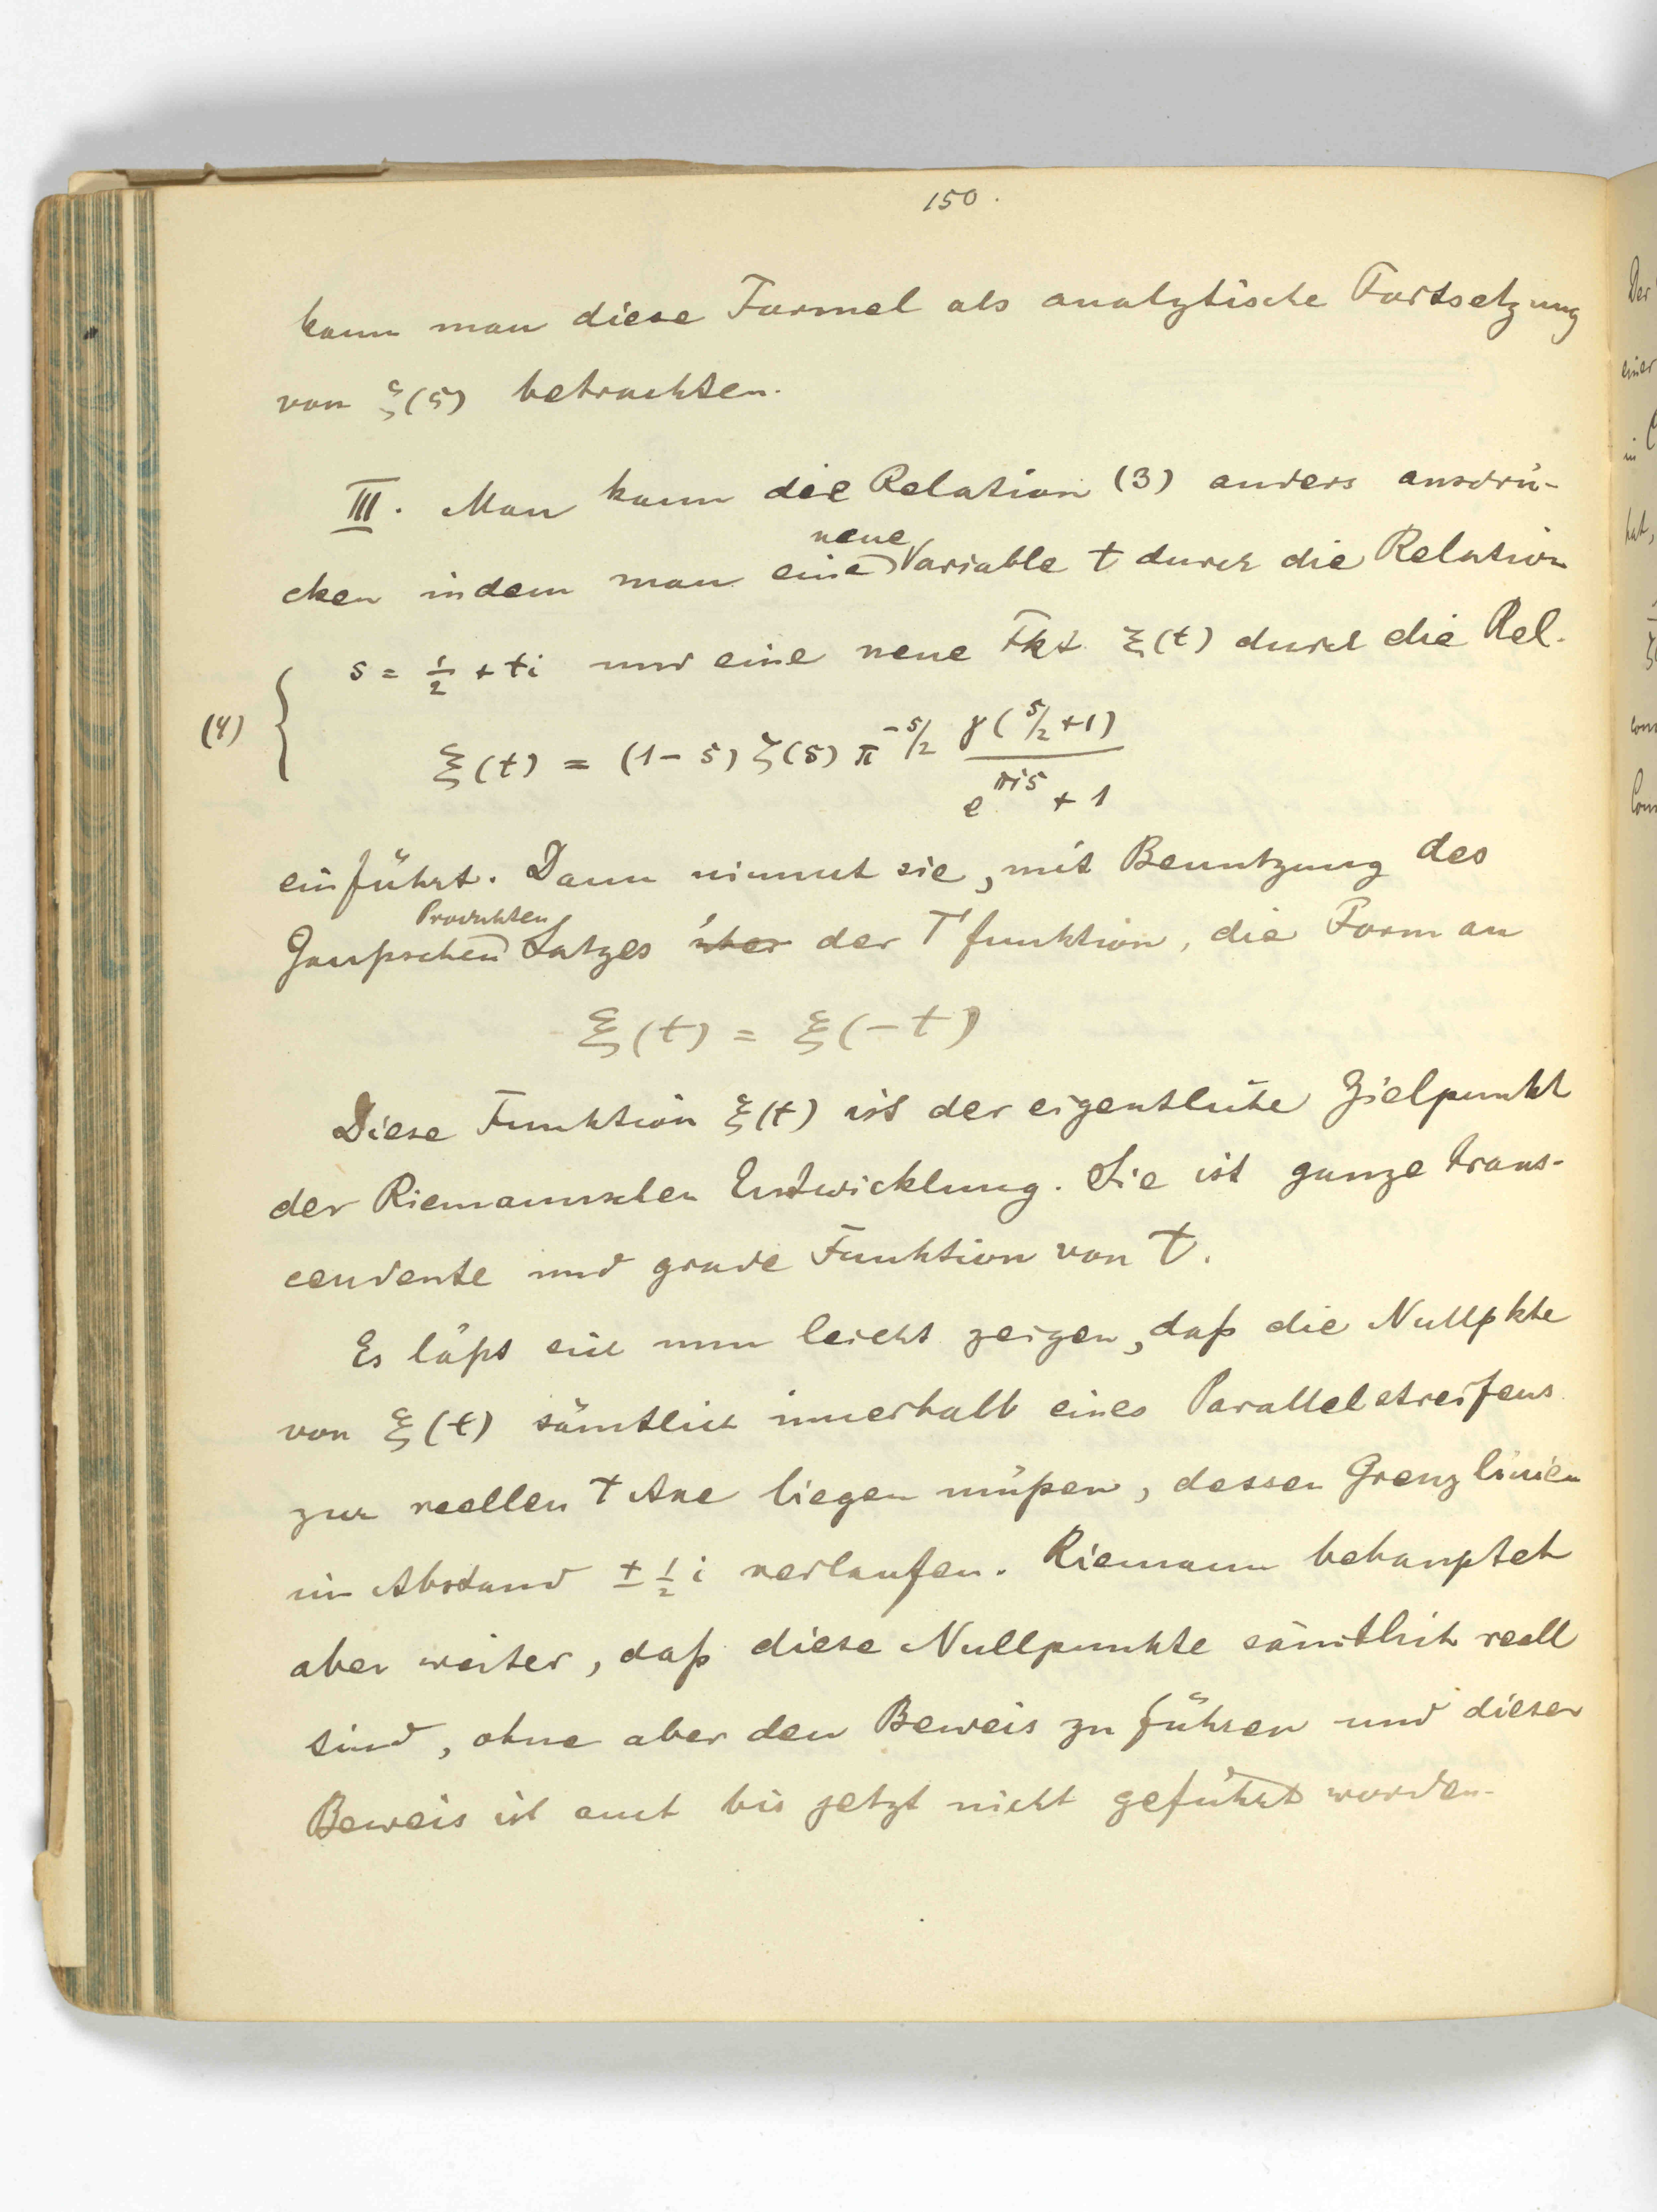 150.
kann man diese Formel als analytische Fortsetzung
von ζ(s) betrachten.
III. Man kann die Relation (3) anders ausdrü-
cken indem man eine neue Variable t durch die Relation
s = 1/2 + ti und eine neue Fkt ξ(t) durch die Rel.
(4) { ξ(t) = (1-s) ζ(s) π^{-s/2} γ(s/2+1) / (e^{πis} + 1)
einführt. Dann nimmt sie, mit Benutzung des
Gaußschen Produkten Satzes über der Γfunktion, die Form an
ξ(t) = ξ(-t)
Diese Funktion ξ(t) ist der eigentliche Zielpunkt
der Riemannschen Entwicklung. Sie ist ganze trans-
cendente und grade Funktion von t.
Es läßt sich nun leicht zeigen, daß die Nullpkte
von ξ(t) sämtlich innerhalb eines Parallelstreifens
zur reellen t Axe liegen müßen, dessen Grenzlinien
im Abstand ± 1/2 i verlaufen. Riemann behauptet
aber weiter, daß diese Nullpunkte sämtlich reell
sind, ohne aber den Beweis zu führen und dieser
Beweis ist auch bis jetzt nicht geführt worden.